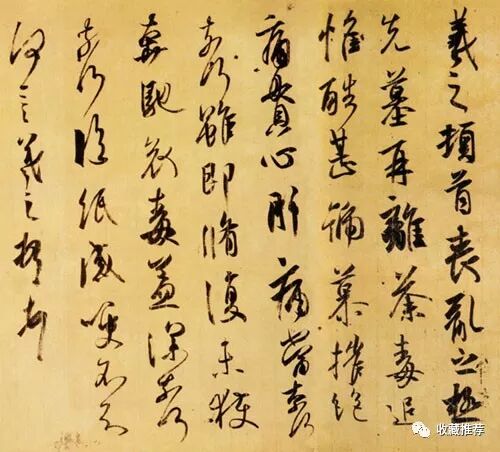 羲之頓首喪亂之極
先墓再離荼毒追
惟酷甚號慕摧絕
痛貫心肝痛當奈何
奈何雖即脩復未獲
奔馳哀毒益深奈何
奈何臨紙感哽不知
何言羲之頓首頓首
收藏推荐